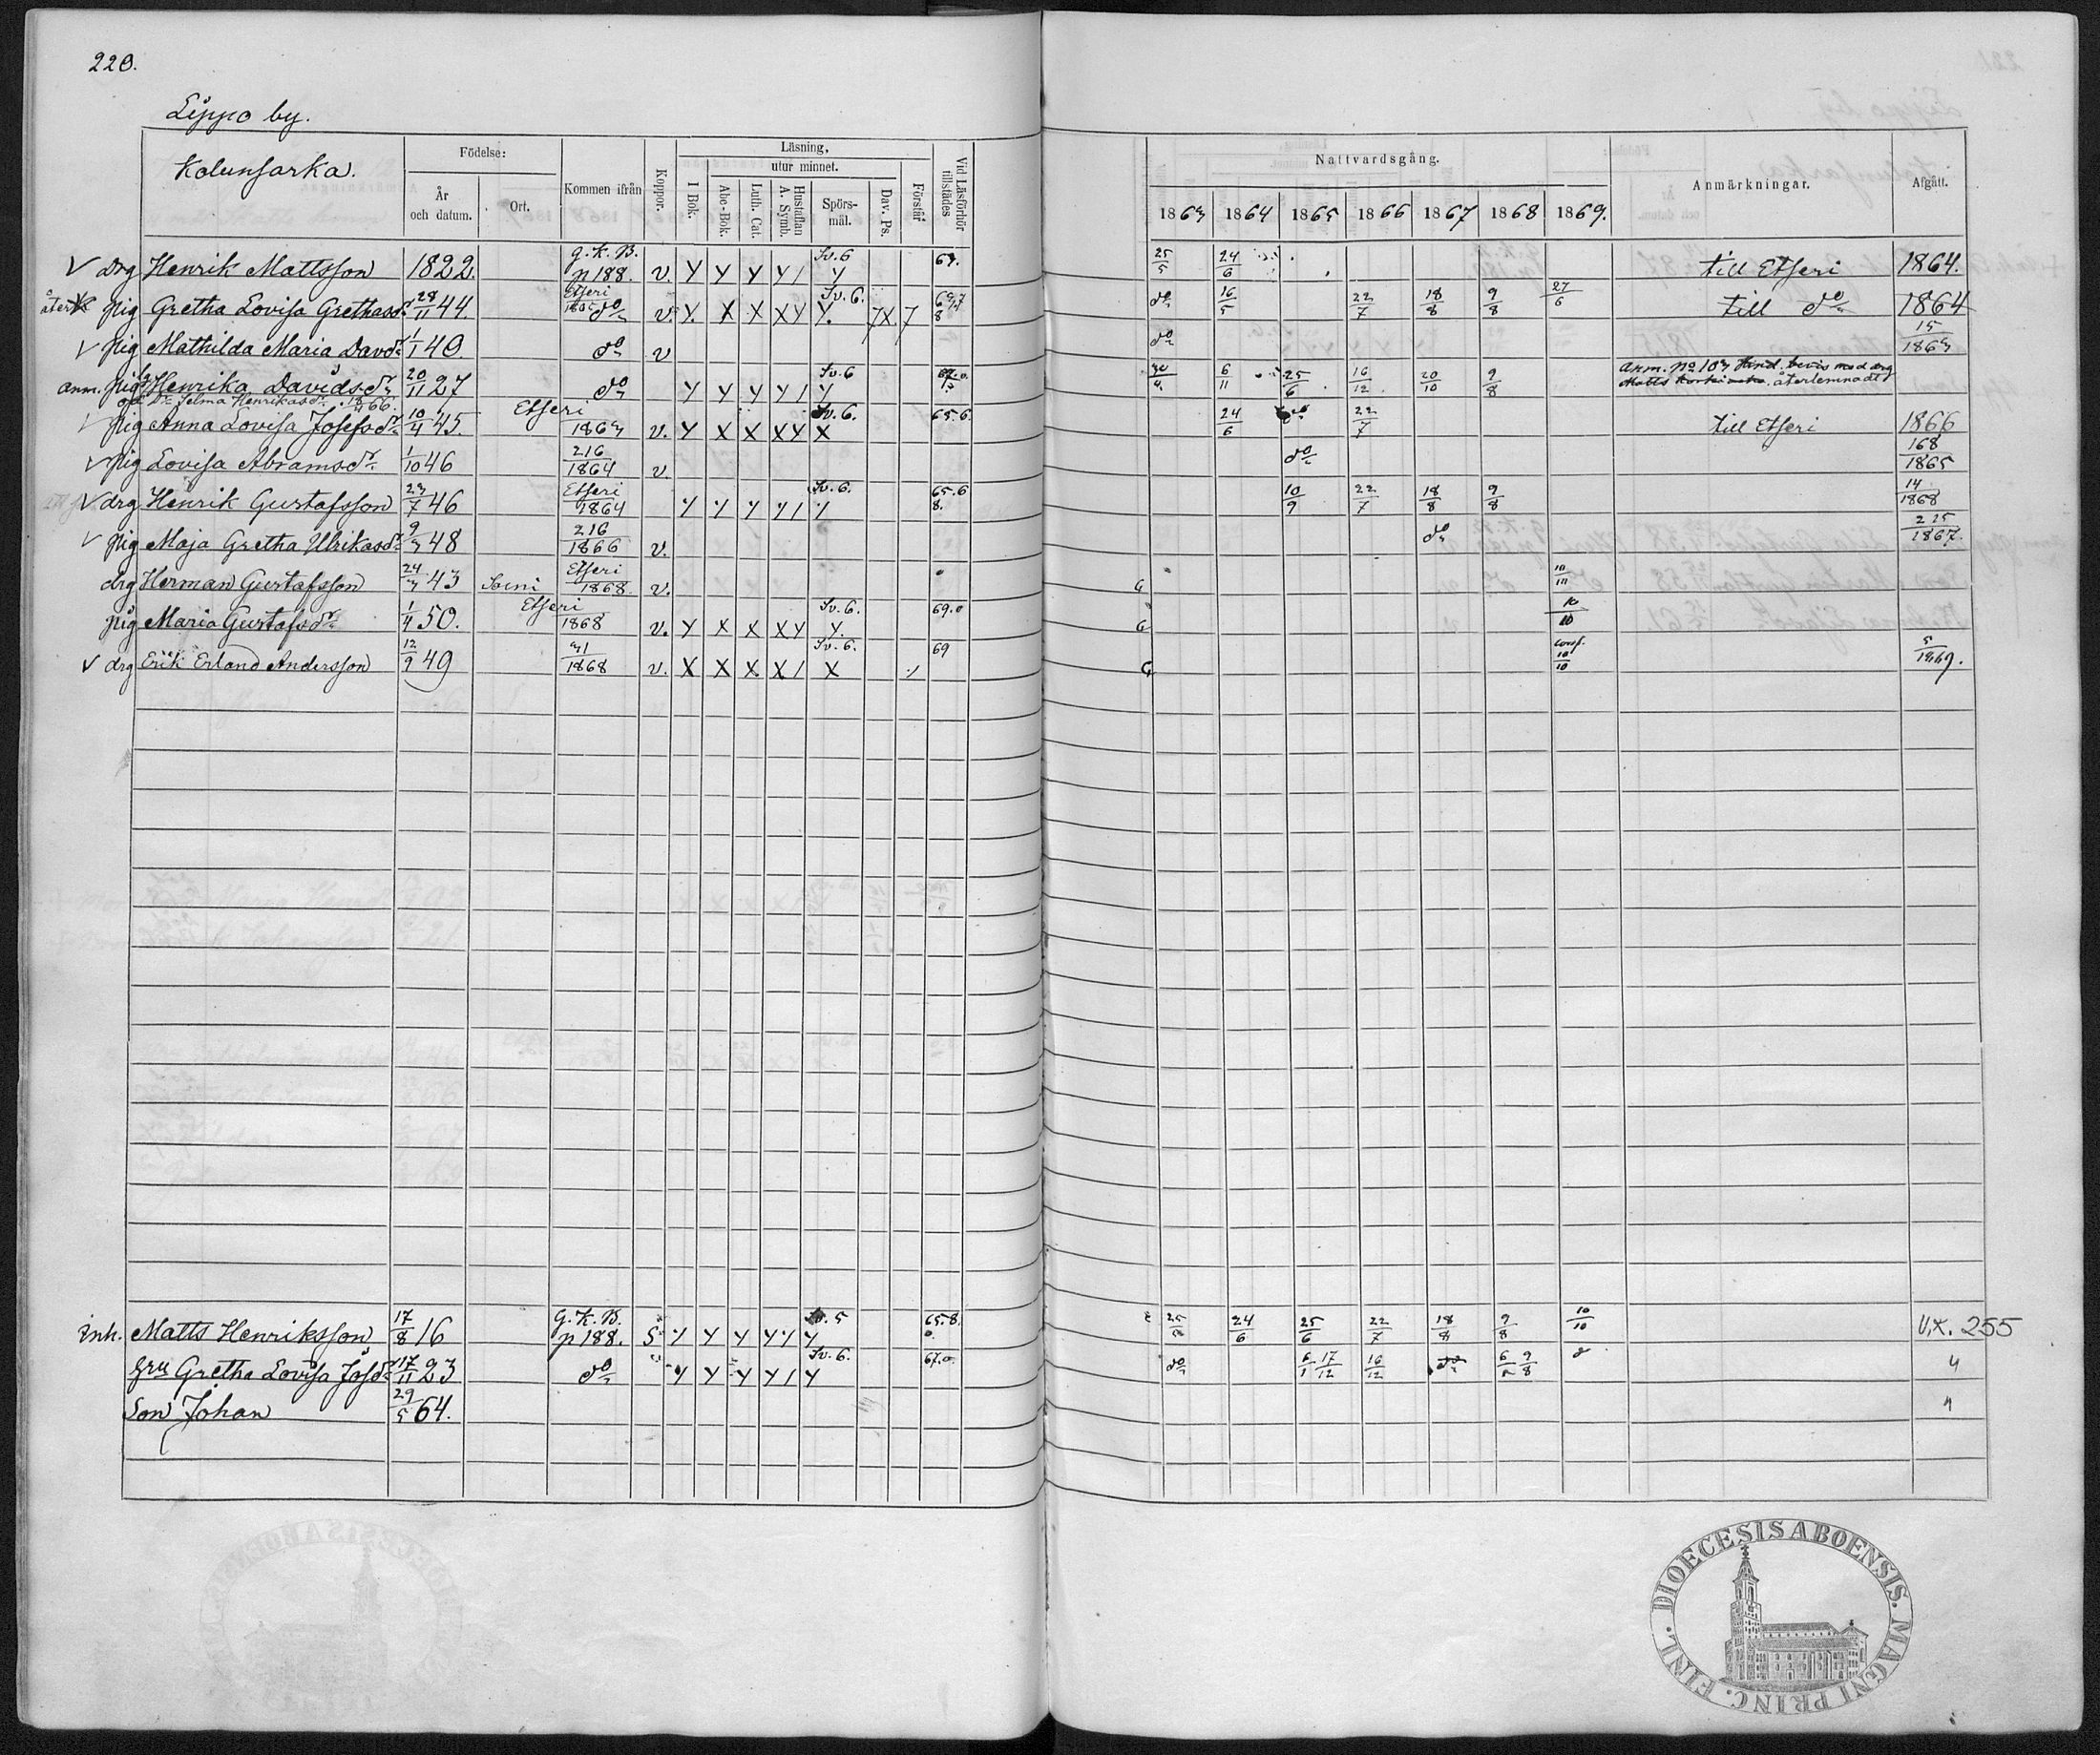 220.
Lippo by.
Kolunsarka.
Födelse:
År och datum.
Ort.
Kommen ifrån
Koppor.
Läsning,
I Bok.
utur minnet.
Abc-Bok.
Luth. Cat.
Hustaflan A. Symb.
Spörs-mål.
Dav. Ps.
Förstår
Vid Läsförhör tillstädes
Nattvardsgång.
1863 1864 1865 1866 1867 1868 1869.
Anmärkningar.
Afgått.
V drg Henrik Mattsson 1822. G.K.B. p 188. v. Y Y Y Y / Sv. 6 Y 25/5 24/6 till Etseri 1864.
pig Gretha Lovisa Grethasdr 28/11 44. Etseri do v. Y. X X X Y Sv. 6. Y. 7X. 7 do 16/5 22/7 18/8 9/8 27/6 till do 1864
V pig Mathilda Maria Davdr 1/1 40. do v do 15/1863
anm. pig Henrika Davidsdr 20/11 27 do Y Y Y Y / Sv. 6 Y 6/11 25/6 16/12 20/10 9/8 Anm. No 103 återlemnadt
oä Dr Selma Henrikasdr 66.
V pig Anna Lovisa Josefsdr 10/4 45. Etseri 1863 v. Y X X X Y Sv. 6. X 65.6. 24/6 do 22/7 till Etseri 1866
V pig Lovisa Abramsdr 1/10 46 216/1864 v. do 168/1865
V drg Henrik Gustafsson 23/7 46 Etseri 1864 Y Y Y Y / Sv. 6. Y 65.6 8. 10/9 22/7 18/8 9/8 14/1868
V pig Maja Gretha Ulrikasdr 9/3 48 216/1866 v. do 215/1867.
drg Herman Gustafsson 24/3 43 Soini Etseri 1868. v. 10/10
pig Maria Gustafsdr 1/4 50. Etseri 1868 v. Y X X X Y Sv. 6. Y. 69.0 10/10
V drg Erik Erland Andersson 12/9 49 31/1868 v. X X X X / Sv. 6. X 69 conf. 10/10 5/1869.
Inh. Matts Henriksson 17/8 16 G.K.B. p 188. S Y Y Y Y Y Sv. 5 Y 65.8. 24/6 25/6 22/7 18/8 9/8 10/10 U.K. 255
hru Gretha Lovisa Josdr 17/11 23 do Y Y Y Y / Sv. 6. Y 67.0. do 6/1 17/12 16/12 do 9/8 "
Son Johan 29/5 64. "
DIOECESIS ABOENSIS. MAGNI PRINC. FINL.